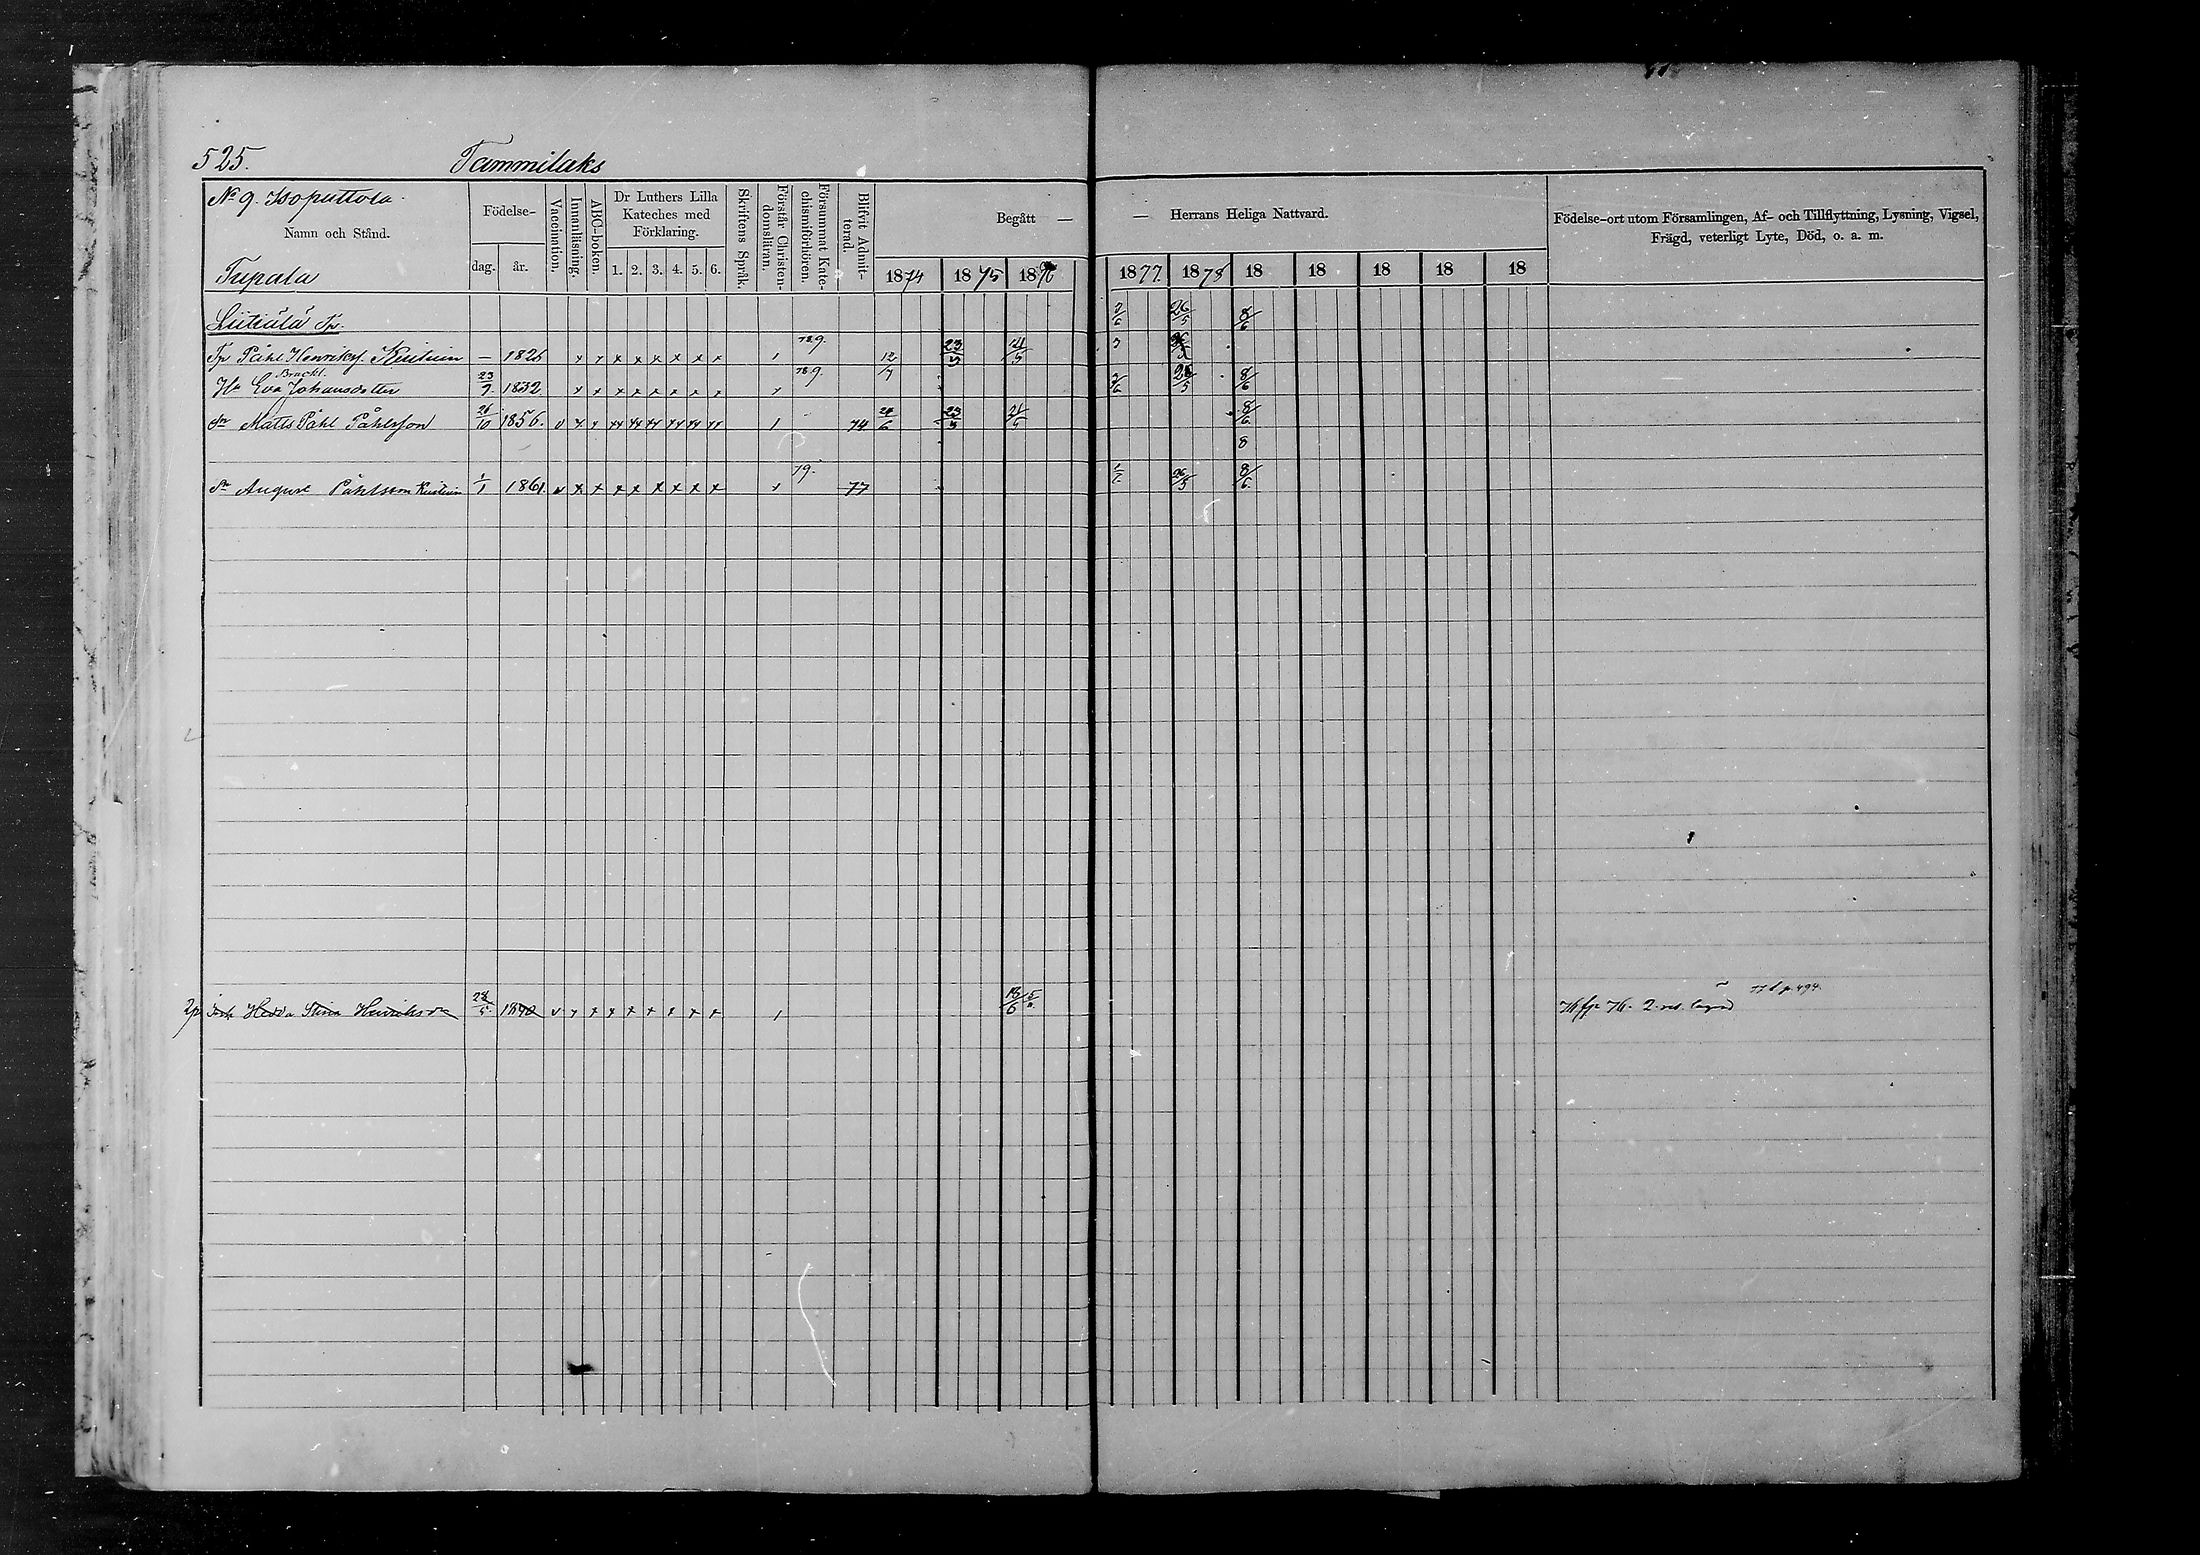 525. Tammilaks
No 9. Isoputtola.
Namn och Stånd.
Födelse-
dag. år.
Vaccination.
Innanläsning.
ABC-boken.
Dr Luthers Lilla
Kateches med
Förklaring.
1. 2. 3. 4. 5. 6.
Skriftens Språk.
Förstår Christen-
domsläran.
Försummat Kate-
chismiförhören.
Blifvit Admit-
terad.
Begått — — Herrans Heliga Nattvard.
1874 1875 1876 1877. 1878 18 18 18 18 18
Födelse-ort utom Församlingen, Af- och Tillflyttning, Lysning, Vigsel,
Frägd, veterligt Lyte, Död, o. a. m.
Tupala
Liitiälä Tp. 3/6 26/5 8/6
Tp Påhl Henriks. — 1826 x x x x x x x x 1 789. 12/7 23/5 21/5 3
Bruckl.
Hu Eva Johansdotter 23/9 1832 x x x x x x x x 789. 3/6 26/5 8/6
Sn Matts Påhl Påhlsson 26/10 1856. v x x xx xx xx xx xx xx 1 74 24/6 23/5 21/5 8/6
8
Sn August Påhlsson 1/1 1861. v x x x x x x x x 79. 77 26/5 8/6
2p Hedda Stina Henriksdr 28/5 1840 v x x x x x x x x 1 18/6 76 2 77 p. 494.